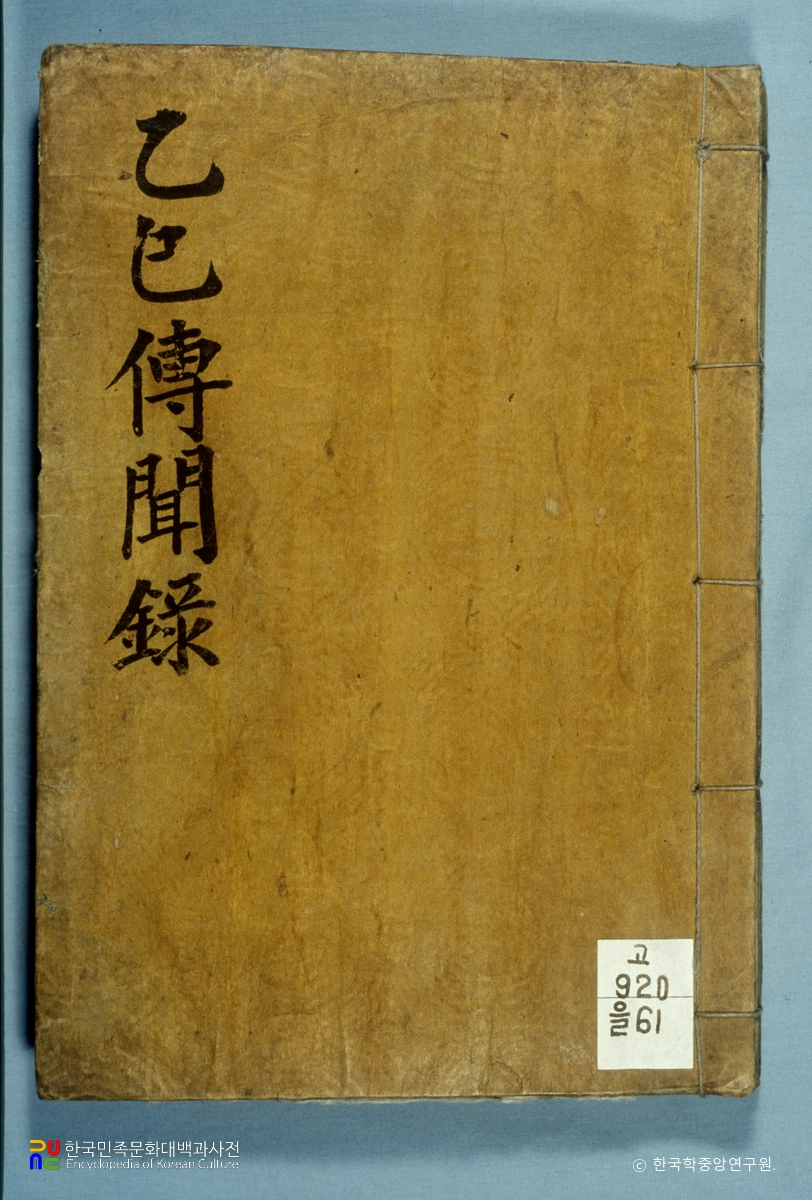 乙巳傳聞錄
고
920
을61
한국민족문화대백과사전
Encyclopedia of Korean Culture
ⓒ 한국학중앙연구원.